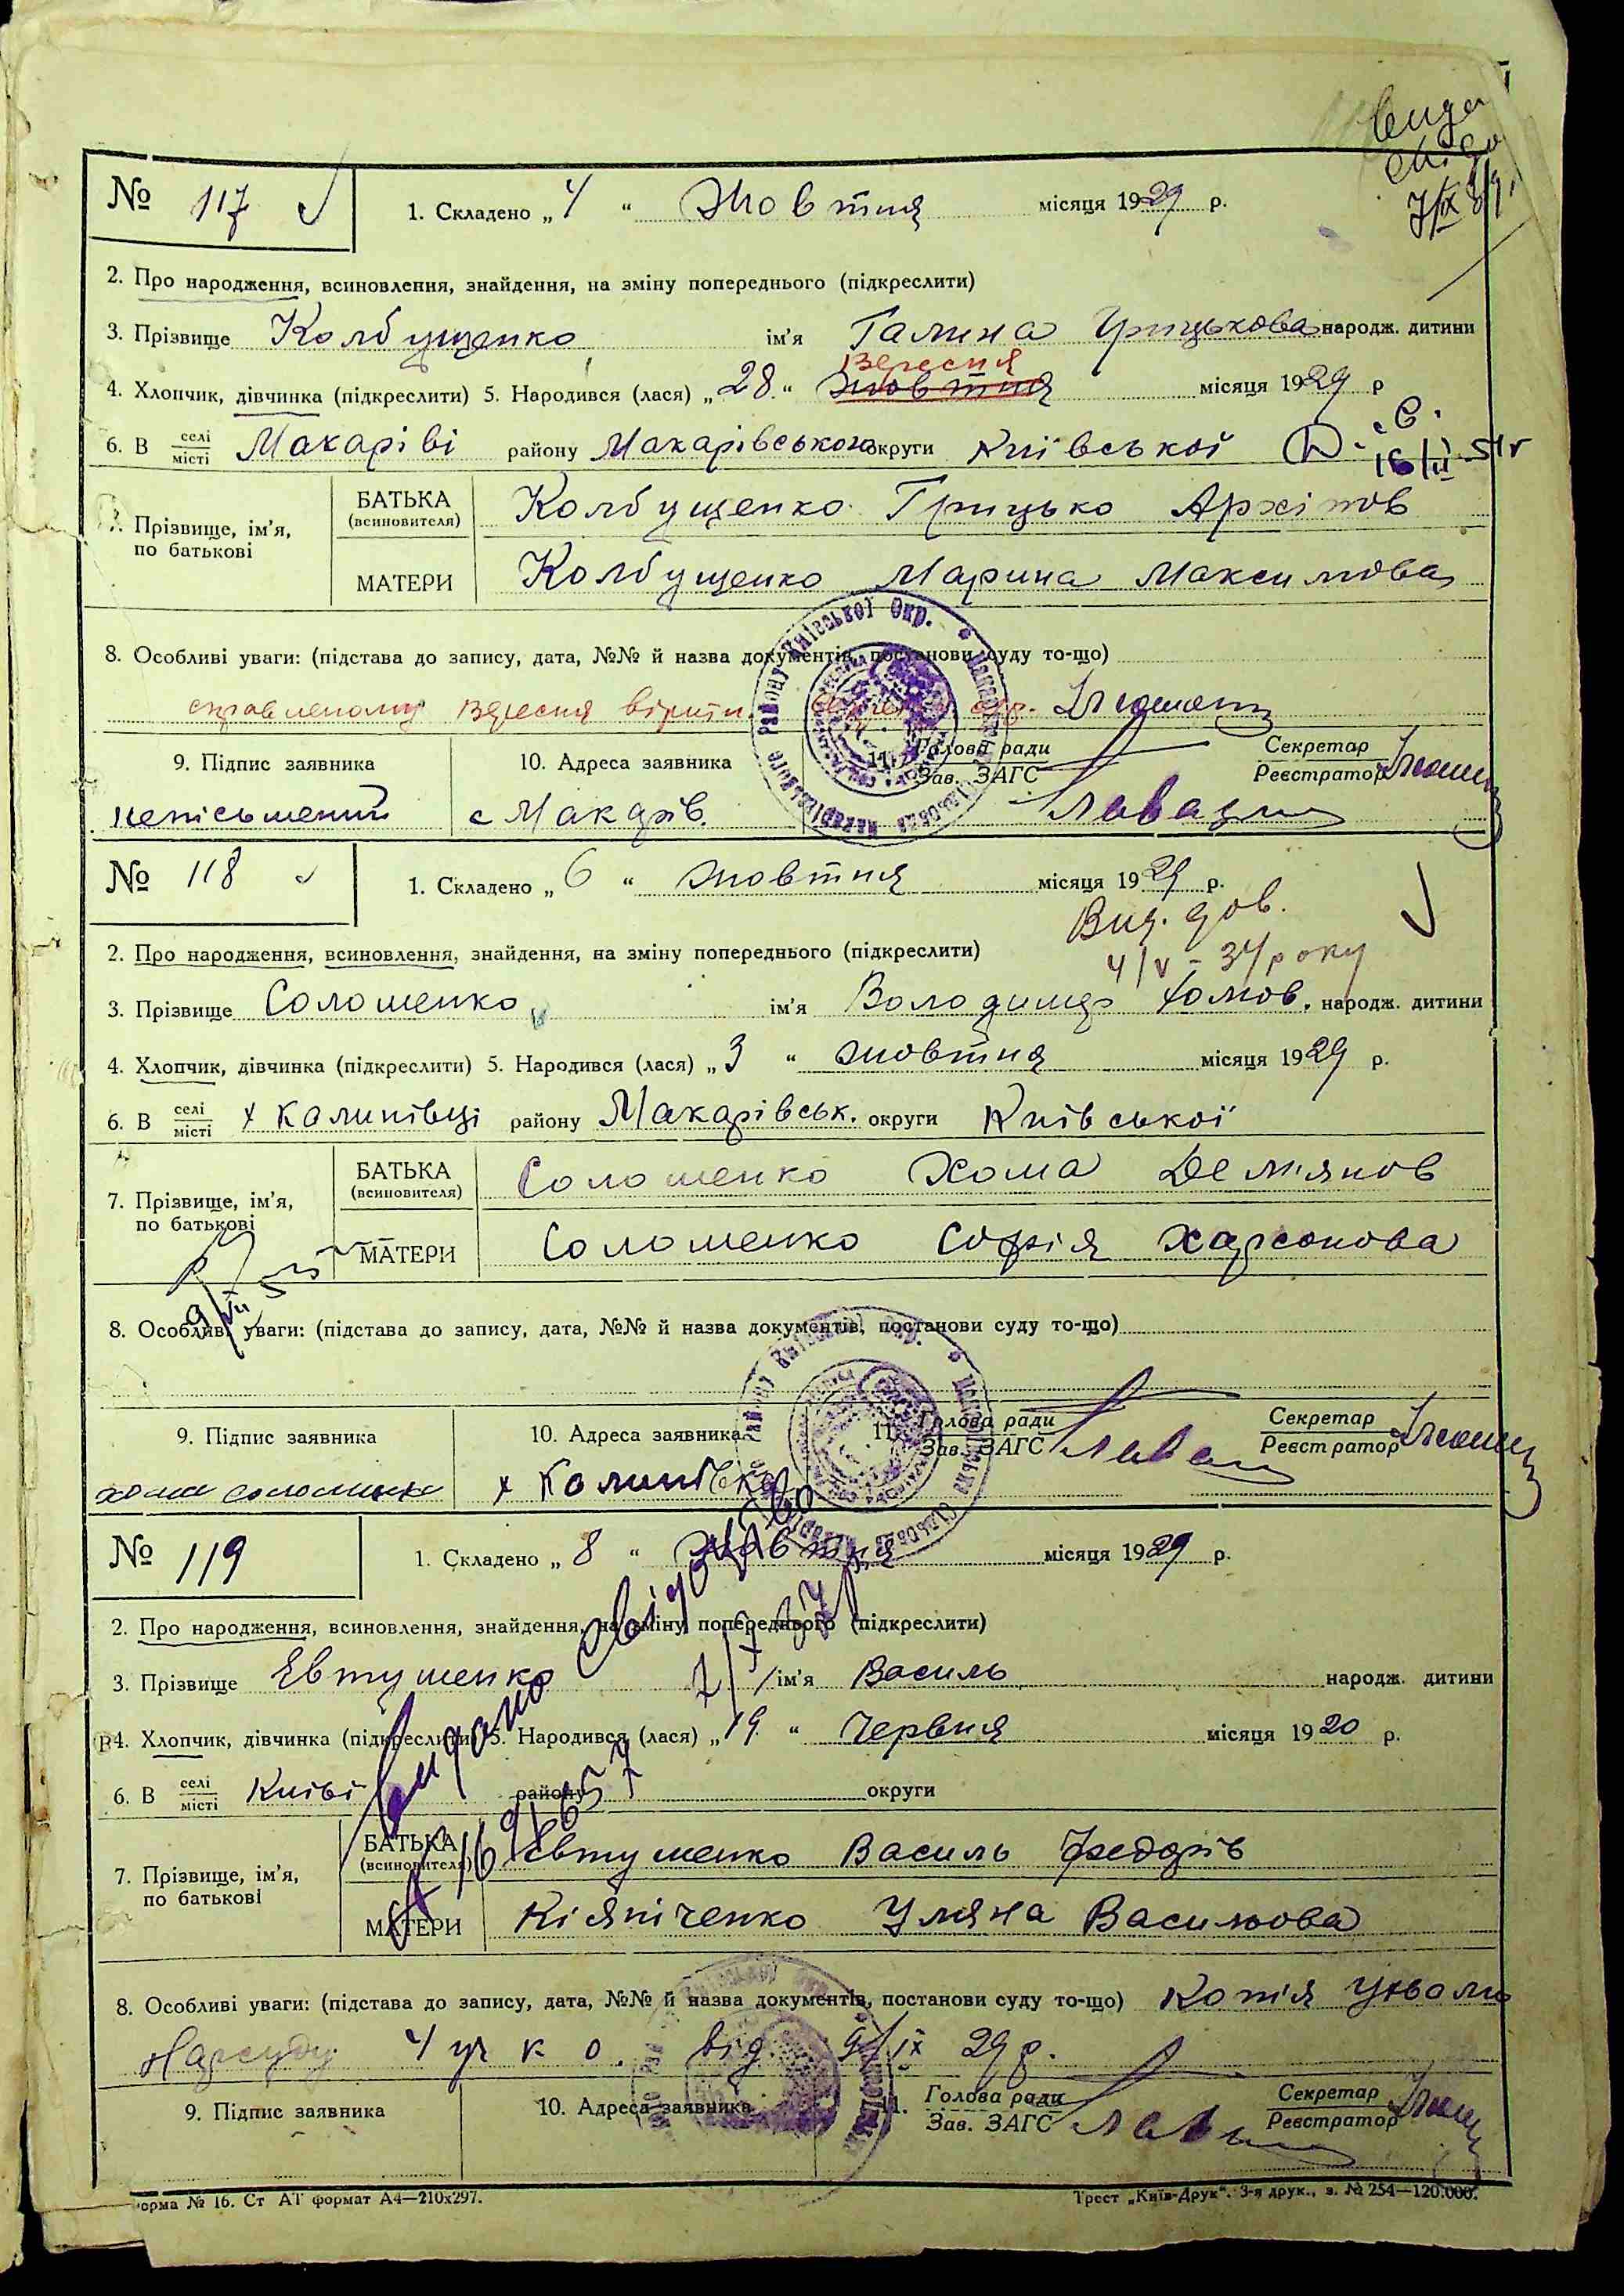 № 117 1. Складено „ 4 “ Жовтня місяця 1929 р.
2. Про народження, всиновлення, знайдення, на зміну попереднього (підкреслити)
3. Прізвище Колбущенко ім'я Галина Грицькова народж. дитини
Вересня
4. Хлопчик, дівчинка (підкреслити) 5. Народився (лася) „ 28 “ Жовтня місяця 1929 р
6. В селі місті Макаріві району Макарівського округи Київської
7. Прізвище, ім'я, по батькові
БАТЬКА (всиновителя) Колбущенко Грицько Архіпов
МАТЕРИ Колбущенко Марина Максимова
8. Особливі уваги: (підстава до запису, дата, №№ й назва документів, постанови суду то-що)
справленому Вересня вірити.
9. Підпис заявника 10. Адреса заявника 11. Голова ради Зав. ЗАГС Секретар Реєстратор
неписьменний с Макарів.
№ 118 1. Складено „ 6 “ жовтня місяця 1929 р.
Вид. дов.
4/V – 34 року
2. Про народження, всиновлення, знайдення, на зміну попереднього (підкреслити)
3. Прізвище Солошенко ім'я Володимер Хомов. народж. дитини
4. Хлопчик, дівчинка (підкреслити) 5. Народився (лася) „ 3 “ жовтня місяця 1929 р.
6. В селі місті х Калинівці району Макарівськ. округи Київської
7. Прізвище, ім'я, по батькові
БАТЬКА (всиновителя) Солошенко Хома Дем'янов
МАТЕРИ Солошенко Софія Харсонова
8. Особливі уваги: (підстава до запису, дата, №№ й назва документів, постанови суду то-що)
9. Підпис заявника 10. Адреса заявника 11. Голова ради Зав. ЗАГС Секретар Реєстратор
х Калинівка
№ 119 1. Складено „ 8 “ Жовтня місяця 1929 р.
2. Про народження, всиновлення, знайдення, на зміну попереднього (підкреслити)
3. Прізвище Евтушенко ім'я Василь народж. дитини
4. Хлопчик, дівчинка (підкреслити) 5. Народився (лася) „ 19 “ Червня місяця 1920 р.
6. В селі місті Київі району округи
видано свідоцтво
7. Прізвище, ім'я, по батькові
БАТЬКА (всиновителя) Євтушенко Василь Федорів
МАТЕРИ Кіяніченко Уляна Васильова
8. Особливі уваги: (підстава до запису, дата, №№ й назва документів, постанови суду то-що) Копія ухвали
Нарсуду 4 уч к о. від 9/ІХ 29 р.
9. Підпис заявника 10. Адреса заявника 11. Голова ради Зав. ЗАГС Секретар Реєстратор
орма № 16. Ст АТ формат А4—210x297. Трест „Київ-Друк“. 3-я друк., з. № 254—120.000.